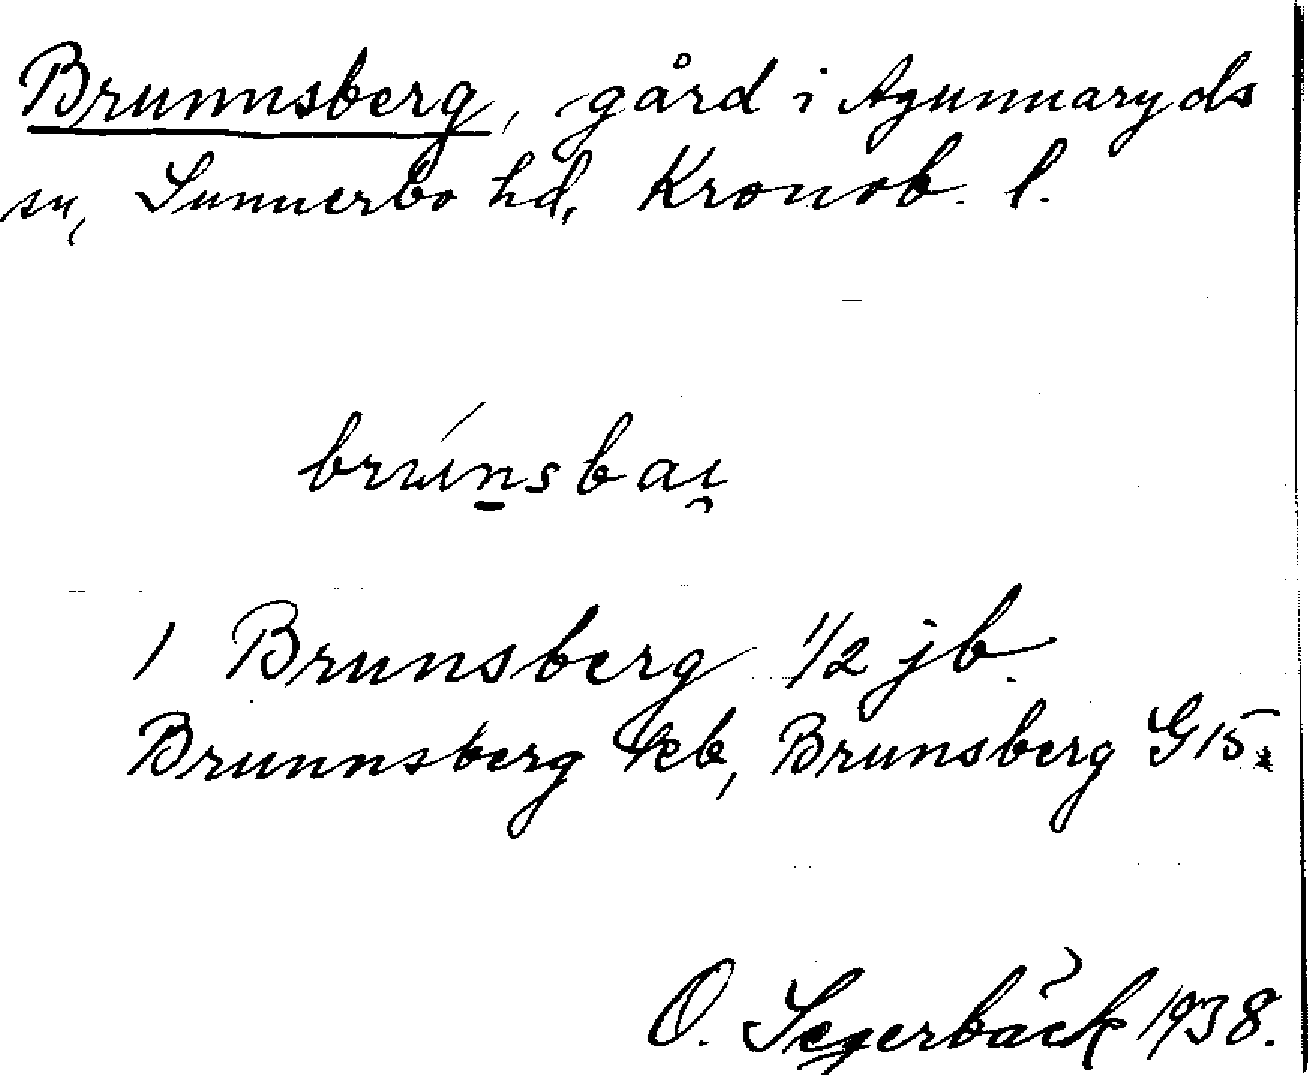 Brunnsberg, gård i Agunnaryds
sn, Sunnerbo hd, Kronob. l.
brúnsbai̯
1 Brunsberg 1/2 jb.
Brunnsberg kb, Brunsberg G15.
O. Segerbäck 1938.